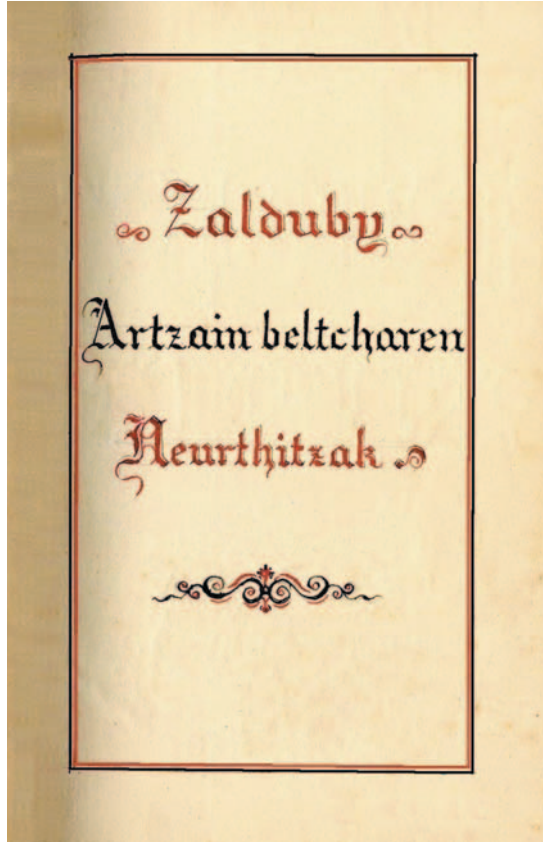 Zalduby
Artzain beltcharen
Neurthitzak